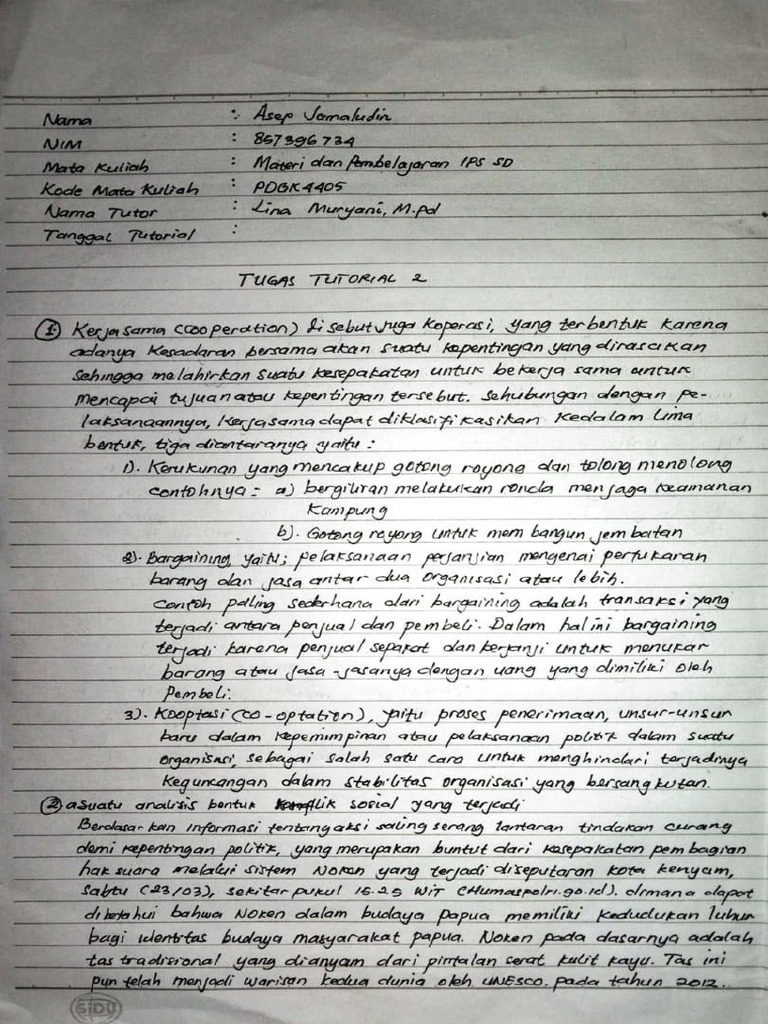 Nama : Asep Jamaludin
NIM : 857396734
Mata Kuliah : Materi dan Pembelajaran IPS SD
Kode Mata Kuliah : PDGK4405
Nama Tutor : Lina Muryani, M.pd
Tanggal Tutorial :
TUGAS TUTORIAL 2
1. Kerjasama (cooperation) disebut juga koperasi, yang terbentuk karena
adanya kesadaran bersama akan suatu kepentingan yang dirasakan
sehingga melahirkan suatu kesepakatan untuk bekerja sama untuk
mencapai tujuan atau kepentingan tersebut. sehubungan dengan pe-
laksanaannya, kerjasama dapat diklasifikasikan kedalam lima
bentuk, tiga diantaranya yaitu :
1). Kerukunan yang mencakup gotong royong dan tolong menolong
contohnya = a) bergiliran melakukan ronda menjaga keamanan
kampung
b). Gotong royong untuk membangun jembatan
2). Bargaining, yaitu; pelaksanaan perjanjian mengenai pertukaran
barang dan jasa antar dua organisasi atau lebih.
contoh paling sederhana dari bargaining adalah transaksi yang
terjadi antara penjual dan pembeli. Dalam hal ini bargaining
terjadi karena penjual sepakat dan berjanji untuk menukar
barang atau jasa-jasanya dengan uang yang dimiliki oleh
pembeli.
3). Kooptasi (co-optation), yaitu proses penerimaan, unsur-unsur
baru dalam kepemimpinan atau pelaksanaan politik dalam suatu
organisasi, sebagai salah satu cara untuk menghindari terjadinya
keguncangan dalam stabilitas organisasi yang bersangkutan.
2. a suatu analisis bentuk konflik sosial yang terjadi
Berdasarkan informasi tentang aksi saling serang lantaran tindakan curang
demi kepentingan politik, yang merupakan buntut dari kesepakatan pembagian
hak suara melalui sistem Noken yang terjadi diseputaran kota kenyam,
sabtu (23/03), sekitar pukul 15.25 WIT (Humaspolri.go.id). dimana dapat
diketahui bahwa Noken dalam budaya papua memiliki kedudukan luhur
bagi identitas budaya masyarakat papua. Noken pada dasarnya adalah
tas tradisional yang dianyam dari pintalan serat kulit kayu. Tas ini
pun telah menjadi warisan kedua dunia oleh UNESCO. pada tahun 2012.
SiDU